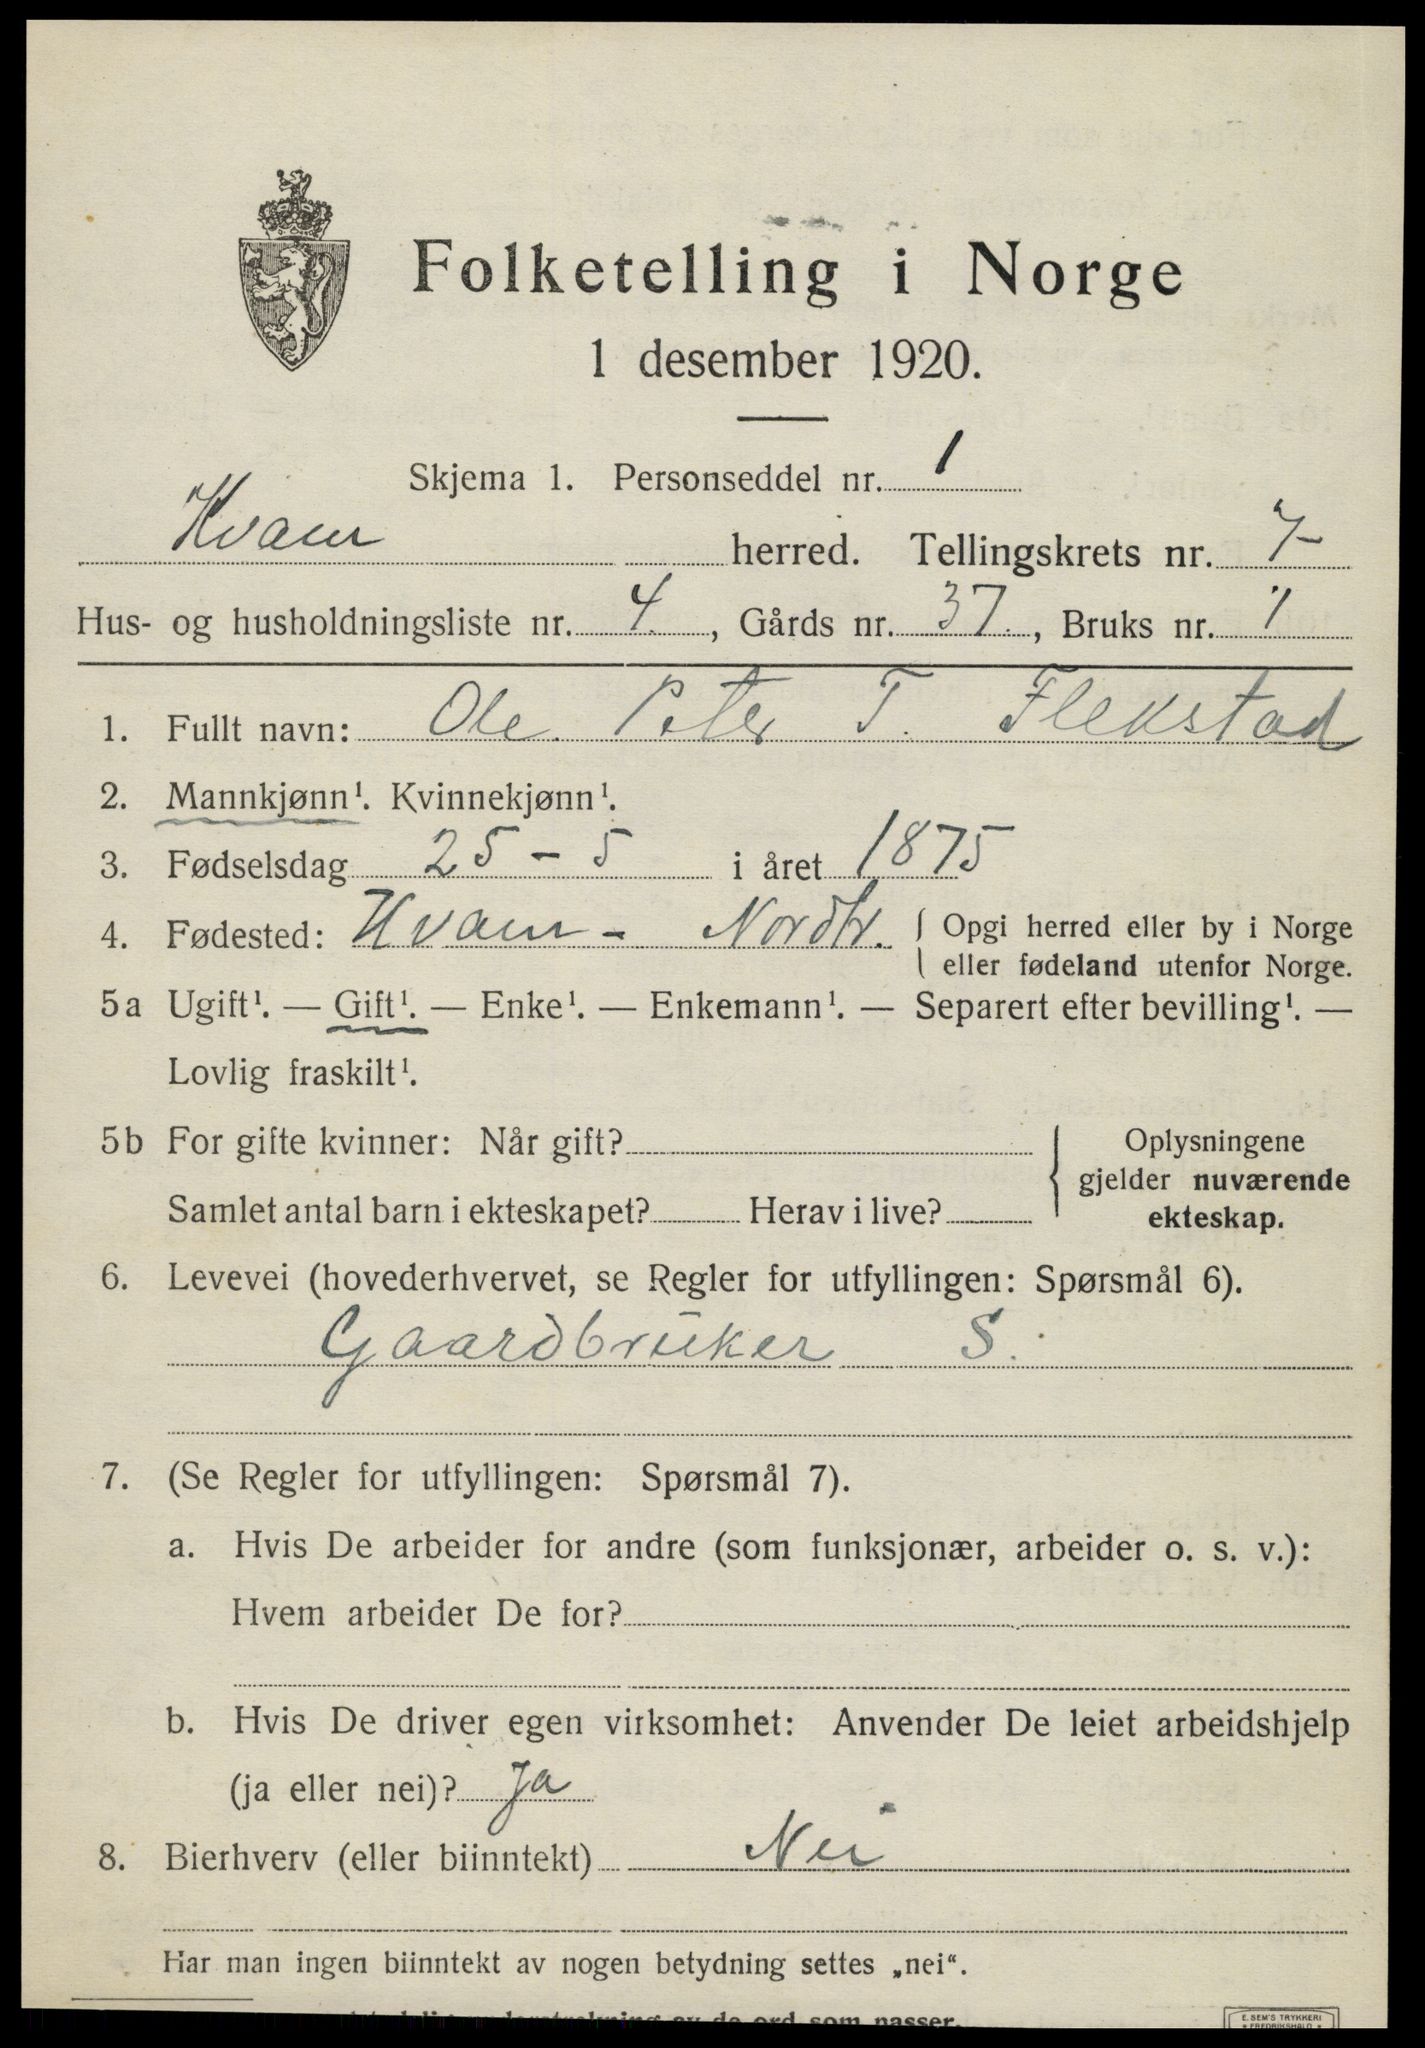 Folketelling i Norge
1 desember 1920.
Skjema 1. Personseddel nr. 1
Kvam herred. Tellingskrets nr. 7
Hus- og husholdningsliste nr. 4. , Gårds nr. 37. , Bruks nr. 1
1. Fullt navn: Ole Peter T. Flekstad
2. Mannkjønn¹. Kvinnekjønn¹.
3. Fødselsdag 25 - 5 i året 1875
4. Fødested: Kvam - Nordfr. { Opgi herred eller by i Norge
eller fødeland utenfor Norge.
5a Ugift¹. — Gift¹. — Enke¹. — Enkemann¹. — Separert efter bevilling¹. —
Lovlig fraskilt¹.
5b For gifte kvinner: Når gift? { Oplysningene
gjelder nuværende
Samlet antal barn i ekteskapet? Herav i live? ekteskap.
6. Levevei (hovederhvervet, se Regler for utfyllingen: Spørsmål 6).
Gaardbruker S.
7. (Se Regler for utfyllingen: Spørsmål 7).
a. Hvis De arbeider for andre (som funksjonær, arbeider o. s. v.):
Hvem arbeider De for?
b. Hvis De driver egen virksomhet: Anvender De leiet arbeidshjelp
(ja eller nei)? Ja
8. Bierhverv (eller biinntekt) Nei
Har man ingen biinntekt av nogen betydning settes „nei“.
understrekning av de ord som passer.
E. SEM'S TRYKKERI
FREDRIKSHALD